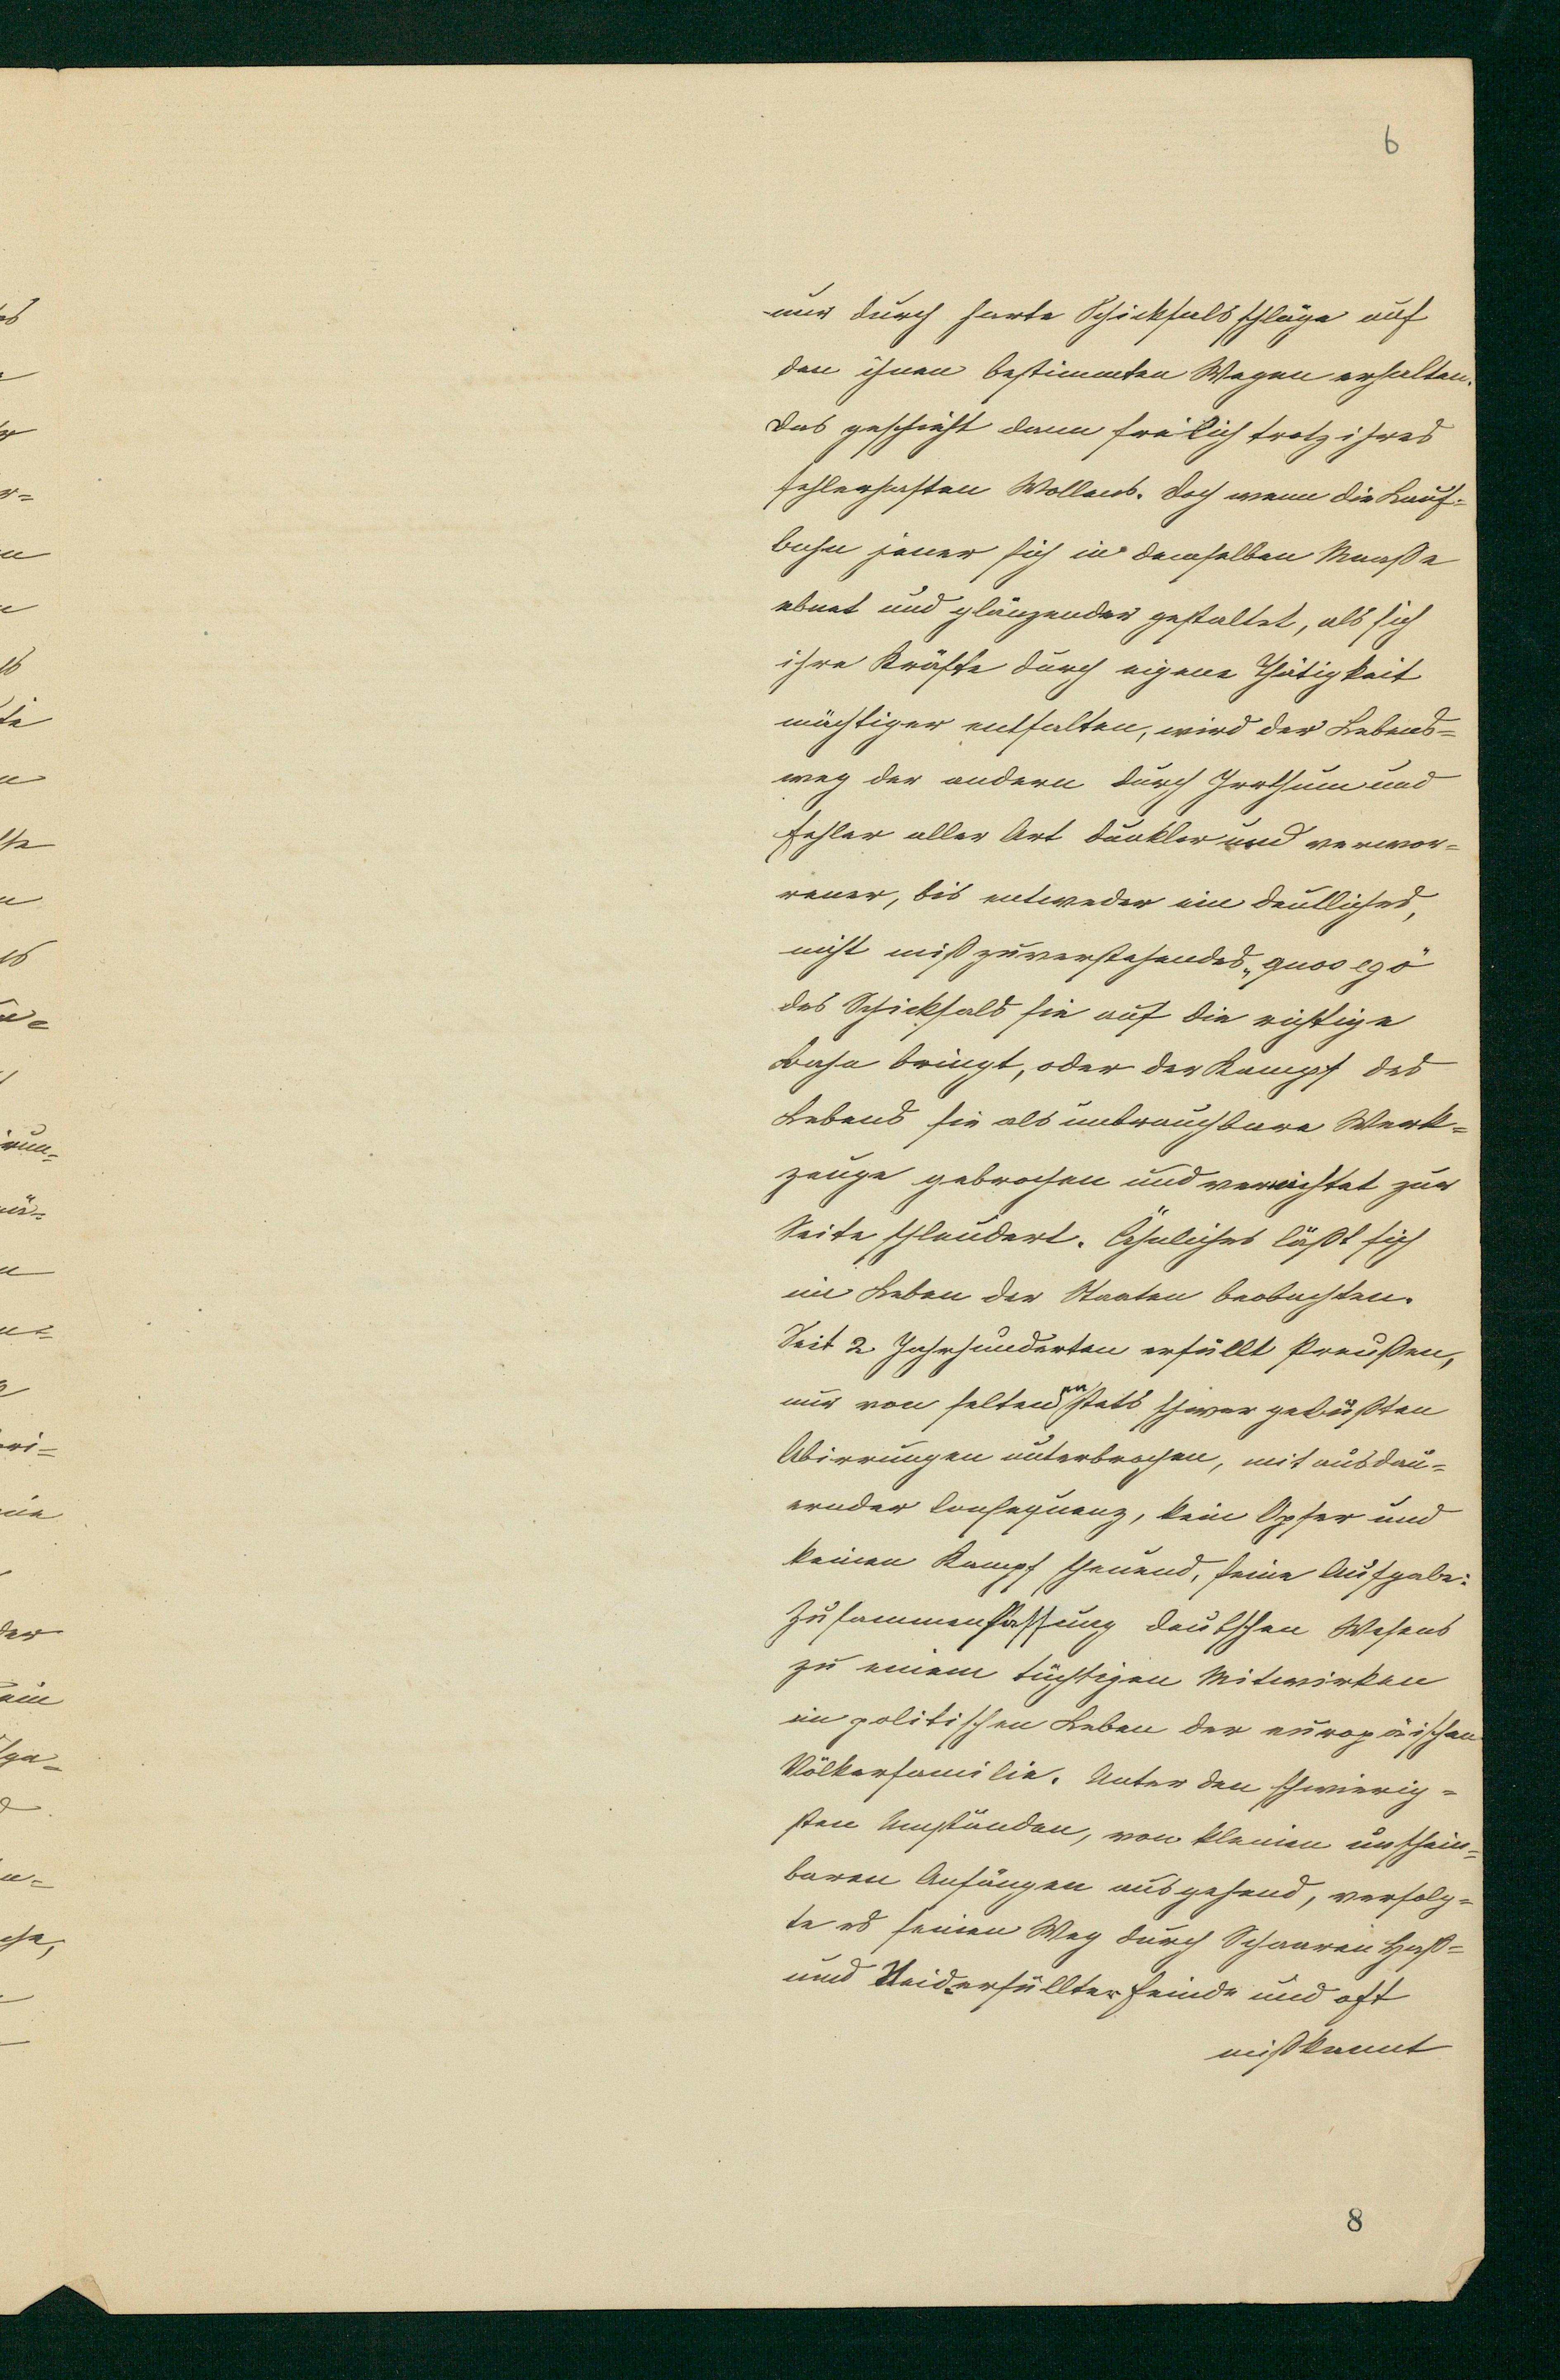 6
nur durch harte Schicksalsschläge auf
den ihnen bestimmten Wegen erhalten.
Das geschieht dann freilich trotz ihres
fehlerhaften Wollens. Doch wenn die Lauf-
bahn jener sich in demselben Maaße
ebnet und glänzender gestaltet, als sich
ihre Kräfte durch eigene Thätigkeit
mächtiger entfalten, wird der Lebens=
weg der andern durch Irrthum und
Fehler aller Art dunkler und verwor=
rener, bis entweder ein deutliches,
nicht mißzuverstehendes „quos ego"
des Schicksals sie auf die richtige
Bahn bringt, oder der Kampf des
Lebens sie als unbrauchbare Werk=
zeuge gebrochen und vernichtet zur
Seite schleudert. Ähnliches läßt sich
im Leben der Staaten beobachten.
Seit 2 Jahrhunderten erfüllt Preußen,
nur von seltenen stets schwer gebüßten
Abirrungen unterbrochen, mit ausdau=
ernder Consequenz, kein Opfer und
keinen Kampf scheuend, seine Aufgabe:
Zusammenfassung deutschen Wesens
zu einem tüchtigen Mitwirken
im politischen Leben der europäischen
Völkerfamilie. Unter den schwierig=
sten Umständen, von kleinen unschein=
baren Anfängen ausgehend, verfolg=
te es seinen Weg durch Schaaren Haß=
und Neid=erfüllter Feinde und oft
mißkannt
8